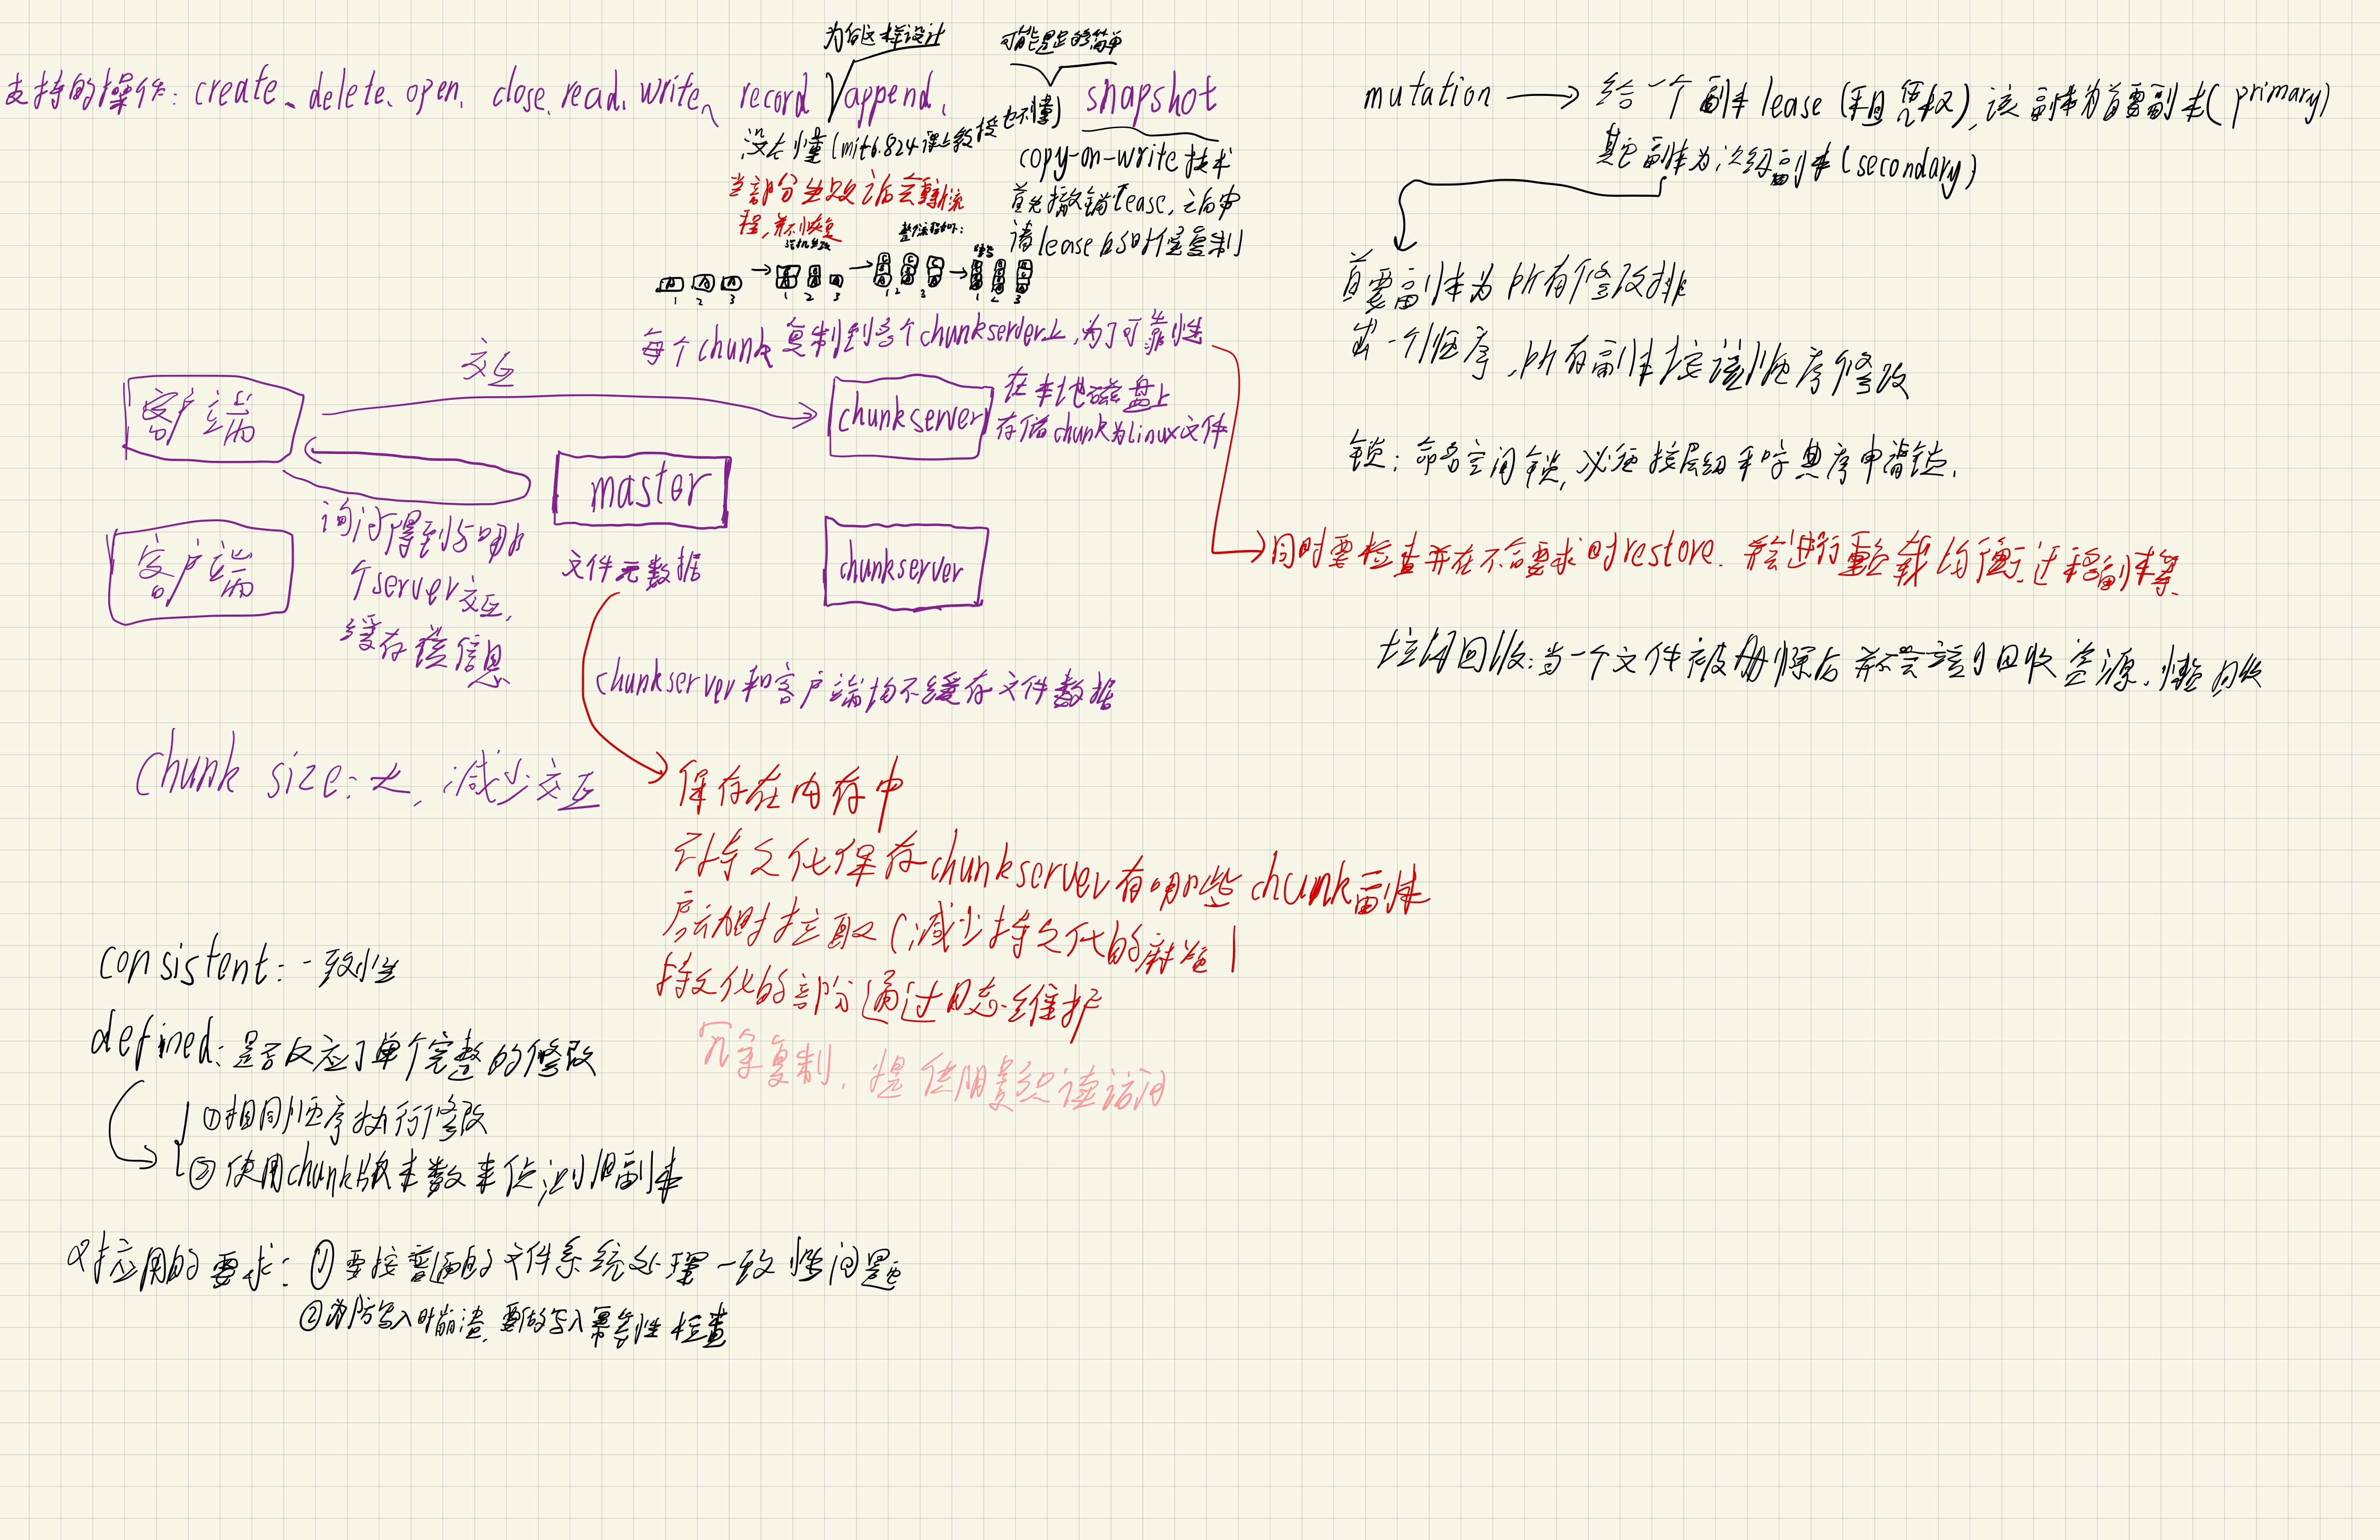 为何这样设计
可能是足够简单
支持的操作: create、delete、open、close、read、write、record append、snapshot
没太懂(mit6.824课上教授也不懂)
当部分失败之后会重新流
程,并不恢复
整体流程如下:
1 2 3 → 1 2 3 → 1 2 3 → 1 2 3
copy-on-write技术
首先撤销lease,之后申
请lease的时候复制
每个chunk复制到多个chunkserver上,为了可靠性
交互
客户端
chunkserver
在本地磁盘上
存储chunk为linux文件
master
文件元数据
客户端
询问得到与哪
个server交互,
缓存该信息
chunkserver
chunkserver和客户端均不缓存文件数据
chunk size: 大, 减少交互
保存在内存中
不持久化保存chunkserver有哪些chunk副本
启动时拉取(减少持久化的麻烦)
持久化的部分通过日志维护
冗余复制, 提供阴影只读访问
consistent: 一致性
defined: 是否反应了单个完整的修改
①相同顺序执行修改
②使用chunk版本数来侦测旧副本
对应用的要求: ①要按普通的文件系统处理一致性问题
②为防写入时崩溃, 要做写入幂等性检查
mutation → 给一个副本lease(租赁权), 该副本为首要副本(primary)
其它副本为次级副本(secondary)
首要副本为所有修改排
出一个顺序,所有副本按该顺序修改
锁: 命名空间锁, 必须按层级和字典序申请锁.
同时要检查并在不合要求时restore. 并会进行重负载均衡, 迁移副本等.
垃圾回收: 当一个文件被删除后并不会立刻回收资源, 懒回收